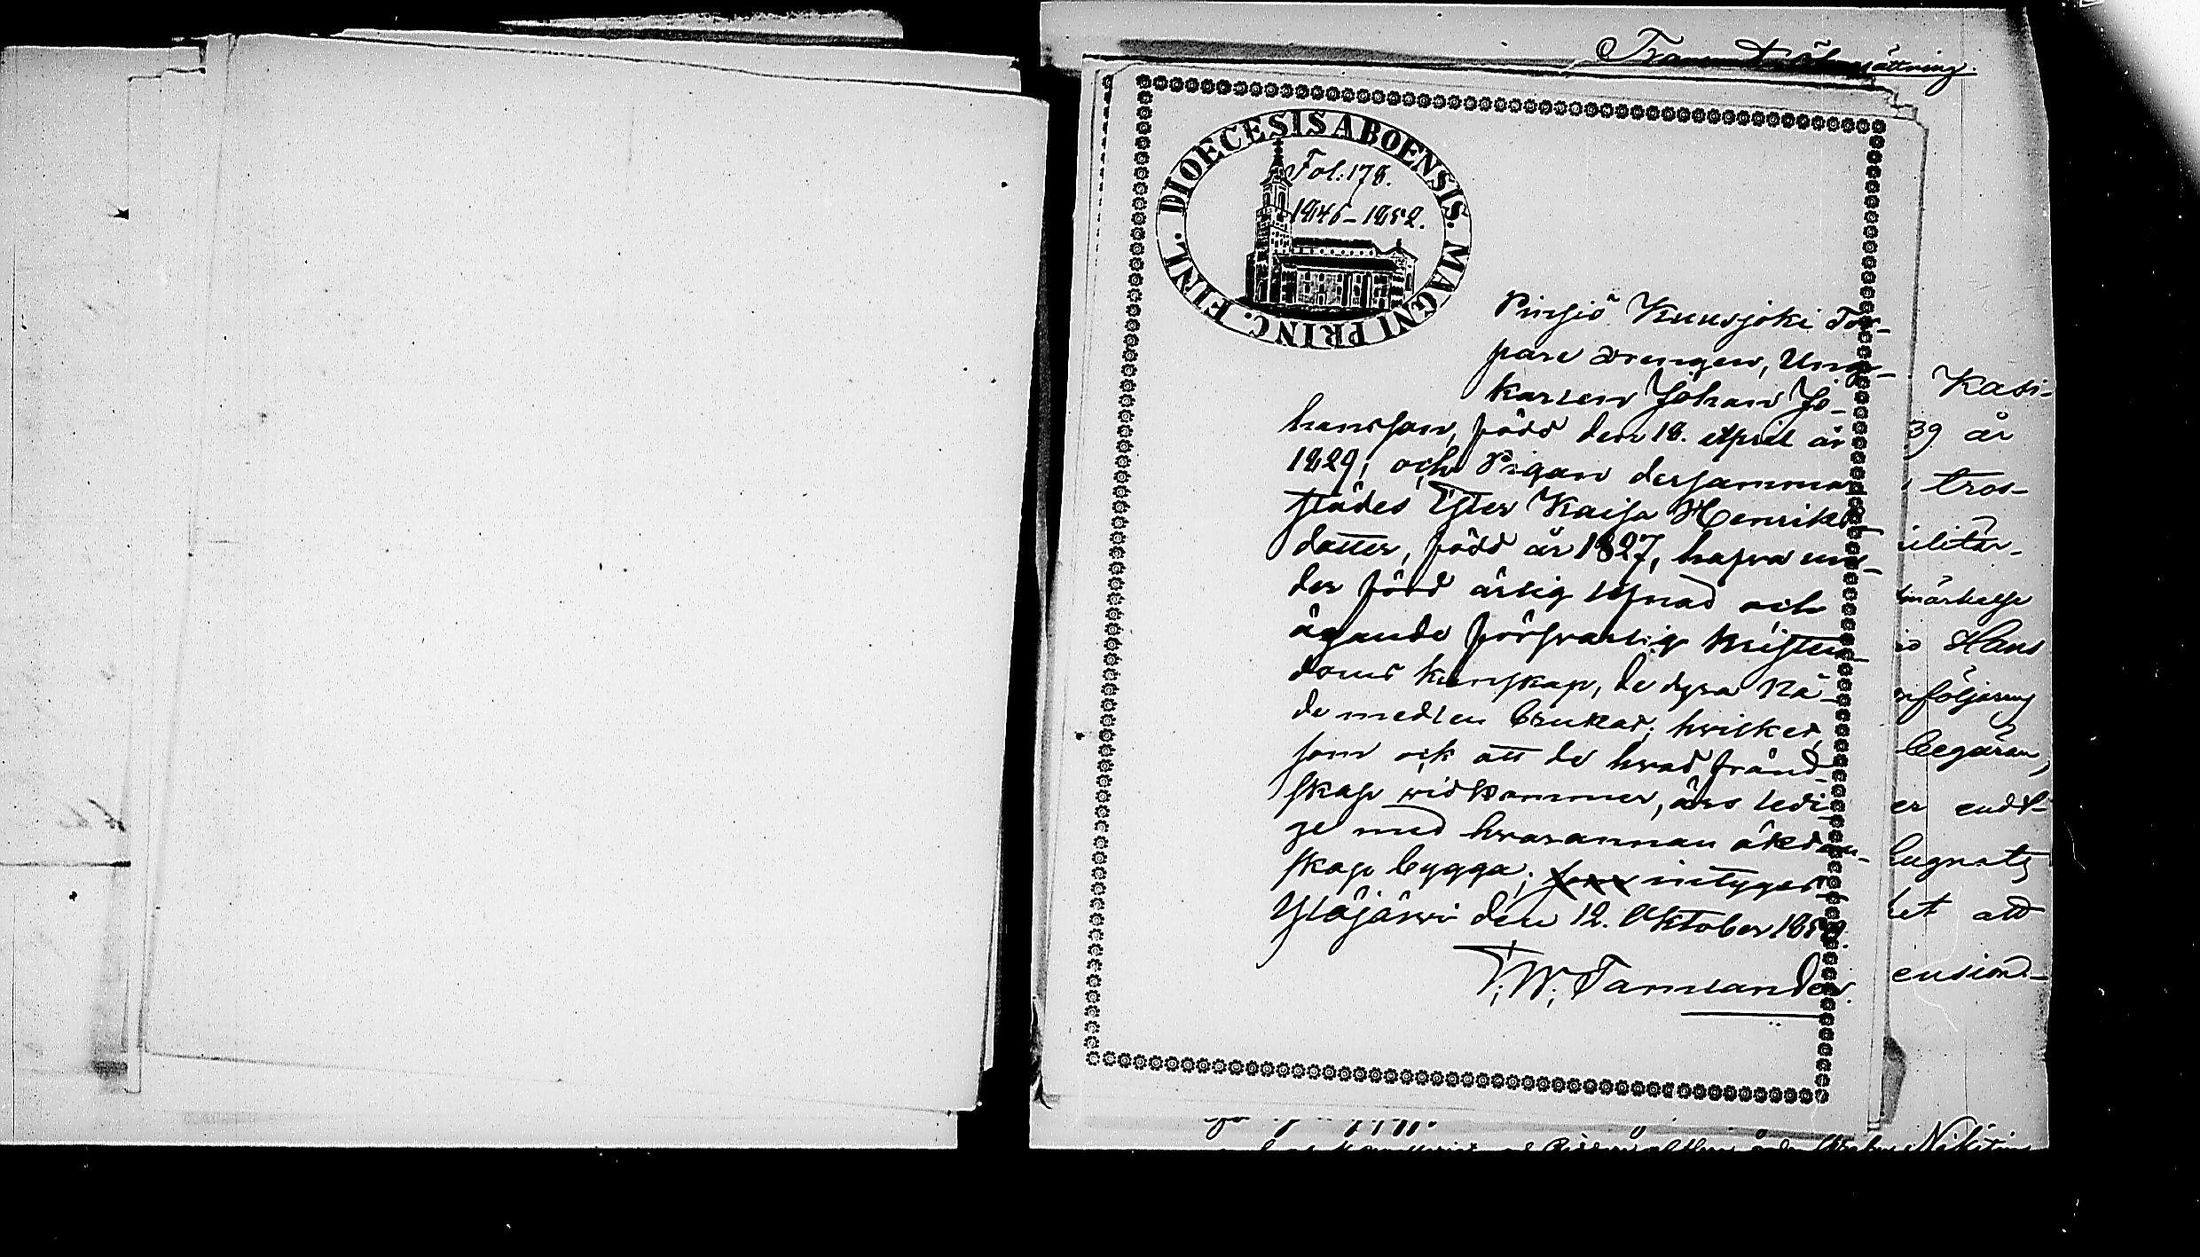 Öfversättning
DIOECESIS ABOENSIS. MAGNI PRINC. FINL.
Fol: 178.
1846-1852.
Pinsiö Kuusjoki Tor-
pare drengen, Ung-
karlen Johan Jo-
hansson, född den 18. April år
1829, och Pigan dersamma-
städes Ester Kaisa Henriks-
dotter, född år 1827, hafva un-
der förd ärlig lefnad och
ägande försvarlig kristen-
doms kunskap, de dyra Nå-
de medlen brukat; hvilket,
som ock att de hvad fränd-
skap widkommer, äro ledi-
ge med hvarannan äkten-
skap bygga; intygar
Ylöjärvi den 12. Oktober 1852.
T. W. Tammlander.
Kasi-
39 år
tros-
ilitär-
märkelse
Hans
följning
begäran,
er endt-
het att
ension-
Nikitin